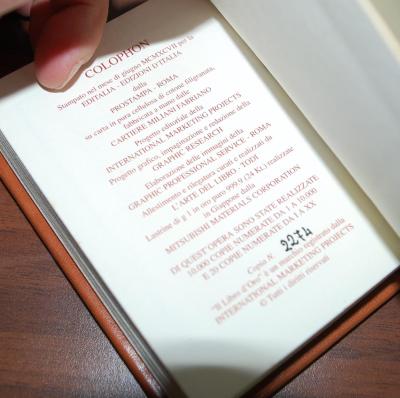 COLOPHON
Stampato nel mese di giugno MCMXCVII per la
EDITALIA - EDIZIONI D'ITALIA
dalla
PROSTAMPA - ROMA
su carta in pura cellulosa di cotone filigranata,
fabbricata a mano dalle
CARTIERE MILIANI FABRIANO
Progetto editoriale della
INTERNATIONAL MARKETING PROJECTS
Progetto grafico, impaginazione e redazione della
GRAPHIC RESEARCH
Elaborazione delle immagini della
GRAPHIC PROFESSIONAL SERVICE - ROMA
Allestimento e rilegatura curati e realizzati da
L'ARTE DEL LIBRO - TODI
Lastrine di g 1 in oro puro 999.9 (24 K.) realizzate
in Giappone dalla
MITSUBISHI MATERIALS CORPORATION
DI QUEST'OPERA SONO STATE REALIZZATE
10.000 COPIE NUMERATE DA 1 A 10.000
E 20 COPIE NUMERATE DA I A XX
Copia N. 2274
"Il Libro d'Oro" è un marchio registrato dalla
INTERNATIONAL MARKETING PROJECTS
© Tutti i diritti riservati